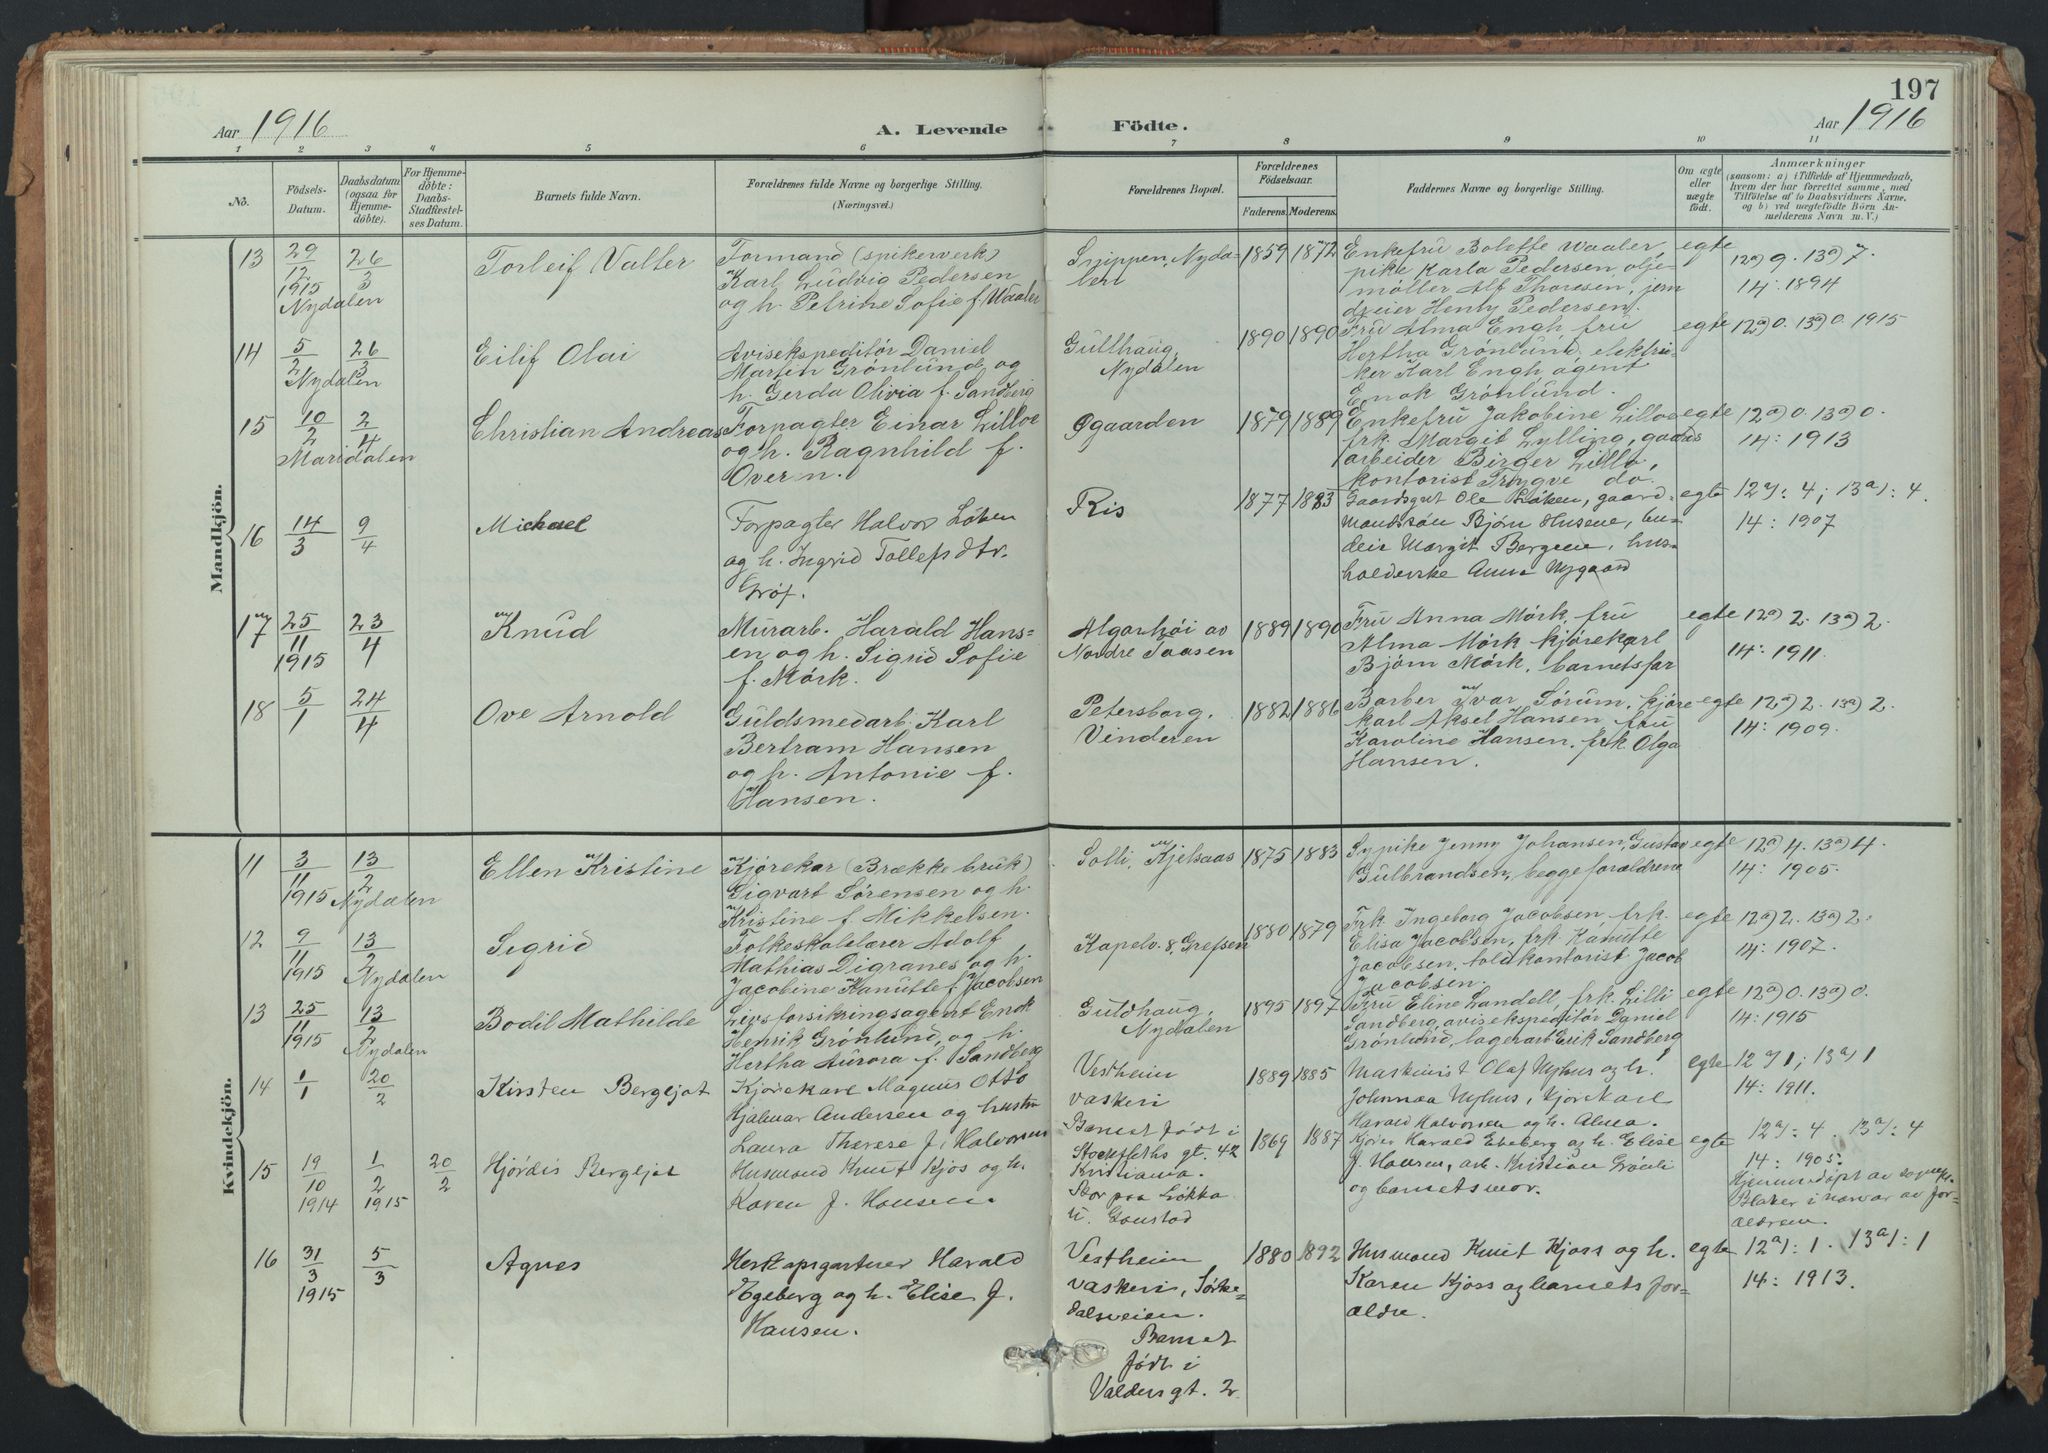 197
Aar 1916
A. Levende Födte.
Aar 1916
1 2 3 4 5 6 7 8 9 10 11
No.
Födsels-Datum.
Daabsdatum (ogsaa for Hjemmedöbte).
For Hjemmedöbte: Daabs-Stadfæstelses Datum.
Barnets fulde Navn.
Forældrenes fulde Navne og borgerlige Stilling.
(Næringsvei.)
Forældrenes Bopæl.
Forældrenes Födselsaar.
Faderens. Moderens.
Faddernes Navne og borgerlige Stilling.
Om ægte eller uægte födt.
Anmærkninger
(saasom: a) i Tilfælde af Hjemmedaab, hvem der har forrettet samme, med Tilföielse af to Daabsvidners Navne. og b) ved uægtefödte Börn Anmelderens Navn m. V.)
Mandkjön.
13 29/12 1915 Nydalen 26/3 Torleif Valter
Formand (spikerverk)
Karl Ludvig Pedersen
og h. Petrine Sofie f. Waaler
Snippen, Nydalen
1859 1872
Enkefru Bolette Waaler,
pike Karla Pedersen, olje-
møller Alf Thoresen, jern
dreier Henry Pedersen.
egte
12a) 9. 13a) 7.
14: 1894
14 5/2 Nydalen 26/3 Eilif Olai
Avisekspeditør Daniel
Martin Grønlund og
h. Gerda Olivia f. Sandberg
Gullhaug,
Nydalen
1890 1890
Fru Alma Engh, fru
Hertha Grønlund, elektri-
ker Karl Engh, agent
Enok Grønlund.
egte
12a) 0. 13a) 0. 1915
15 10/2 Maridalen 2/4 Christian Andreas
Forpagter Einar Lilloe
og h. Ragnhild f.
Overn.
Øgaarden
1879 1889
Enkefru Jakobine Lilloe
frk. Margit Lylling, gaards
arbeider Birger Lillo,
kontorist Trygve do.
egte
12a) 0. 13a) 0.
14: 1913
16 14/3 9/4 Michael
Forpagter Halvor Løken
og h. Ingrid Tollefsdtr.
Grøt.
Ris
1877 1883
Gaardsgut Ole Løken, gaard-
mandssøn Bjørn Husene, bu-
deie Margit Bergene, hus-
holderske Anna Nygaard
egte
12a): 4; 13a): 4.
14: 1907
17 25/11 1915 23/4 Knud
Murarb. Harald Hans-
en og h. Sigrid Sofie
f. Mørk.
Algarhøi av
Nordre Taasen
1889 1890
Fru Anna Mørk, fru
Alma Mørk, kjørekarl
Bjørn Mørk, barnets far
egte
12a) 2. 13a) 2.
14: 1911.
18 5/1 24/4 Ove Arnold
Guldsmedarb. Karl
Bertram Hansen
og h. Antonie f.
Hansen.
Petersborg,
Vinderen
1882 1886
Barber Ivar Sørum, kjøre
karl Aksel Hansen, fru
Karoline Hansen, frk Olga
Hansen.
egte
12a) 2. 13a) 2.
14: 1909.
Kvindekjön.
11 3/11 1915 13/2 Nydalen Ellen Kristine
Kjørekar (Brække bruk)
Sigvart Sørensen og h.
Kristine f. Mikkelsen.
Solli, Kjelsaas
1875 1883
Sypike Jenny Johansen, Gustav
Gulbrandsen, begge foreldrene
egte
12a) 4. 13a) 4.
14: 1905.
12 9/11 1915 13/2 Nydalen Sigrid
Folkeskolelærer Adolf
Mathias Digranes og h.
Jacobine Kanutte f. Jacobsen
Kapelv. 8, Grefsen
1880 1879
Frk. Ingeborg Jacobsen, frk.
Elisa Jacobsen, frk Kanutte
Jacobsen, toldkontorist Jacob
Jacobsen.
egte
12a) 2. 13a) 2.
14: 1907.
13 25/11 1915 13/2 Nydalen Bodil Mathilde
Livsforsikringsagent Enok
Henrik Grønlund, og h.
Hertha Aurora f. Sandberg
Guldhaug,
Nydalen
1895 1897
Fru Eline Landell, frk. Lilli
Sandberg, avisekspeditør Daniel
Grønlund, lagerarb Erik Sandberg
egte
12a) 0. 13a) 0.
14: 1915
14 1/1 20/2 Kirsten Bergljot
Kjørekarl Magnus Otto
Hjalmar Andersen og hustru
Laura Therese f. Halvorsen
Vestheim
vaskeri
1889 1885
Maskinist Olaf Nyhus og h.
Johanna Nyhus, kjørekarl
Harald Halvorsen og h. Alma.
egte
12a) 1; 13a) 1
14: 1911.
15 19/10 1914 1/2 1915 20/2 Hjørdis Bergljot
Husmand Knut Kjos og h.
Karen f. Hansen.
Barnet født i
Stockfleths gt. 42
Kristiania.
Bor paa Løkka
u. Gaustad
1869 1887
Kjører Harald Egeberg og h. Elise
f. Hansen, arb. Kristian Grønli
og barnets mor.
egte
12a): 4. 13a): 4
14: 1905.
Hjemmedøpt av sognepr.
Blaker i nærvær av for-
ældrene.
16 31/3 1915 5/3 Agnes
Herskapsgartner Harald
Egeberg og h. Elise f.
Hansen.
Vestheim
vaskeri, Sørke-
dalsveien.
Barnet
født i
Valdersgt. 2
1880 1892
Husmand Knut Kjoss og h.
Karen Kjoss og barnets for-
ældre.
egte
12a): 1. 13a): 1
14: 1913.